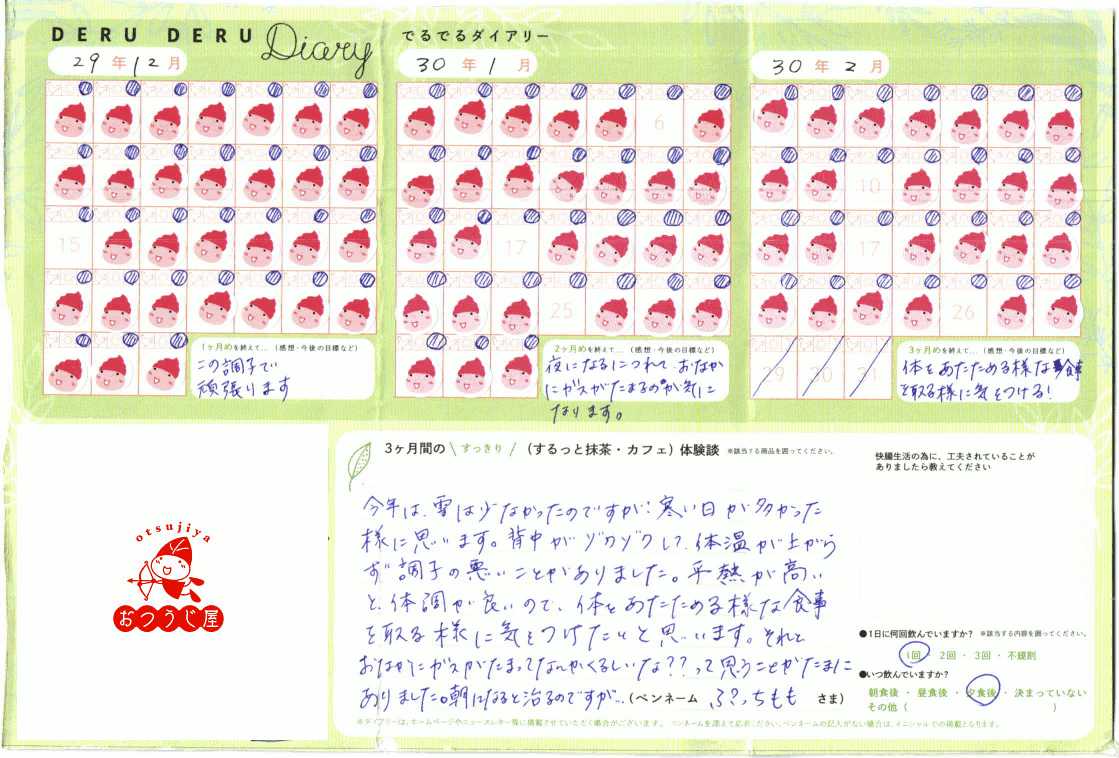 DERU DERU Diary
でるでるダイアリー
29年12月
30年1月
30年2月
6
10
15
17
17
25
26
29
30
31
1ヶ月めを終えて…（感想・今後の目標など）
この調子で
頑張ります
2ヶ月めを終えて…（感想・今後の目標など）
夜になるにつれて、おなか
にガスがたまるのが気に
なります。
3ヶ月めを終えて…（感想・今後の目標など）
体をあたためる様な食事
を取る様に気をつける！
otsujiya
おつうじ屋
3ヶ月間の\すっきり/（するっと抹茶・カフェ）体験談 ※該当する商品を囲ってください。
今年は、雪は少なかったのですが、寒い日が多かった
様に思います。背中がゾクゾクして、体温が上がら
ず調子の悪いことがありました。平熱が高い
と、体調が良いので、体をあたためる様な食事
を取る様に気をつけたいと思います。それと
おなかにガスがたまってなんかくるしいな？？って思うことがたまに
ありました。朝になると治るのですが…（ペンネーム ぷっちもも さま）
※ダイアリーは、ホームページやニュースレター等に掲載させていただく場合がございます。 ペンネームを添えて応募ください。ペンネームの記入がない場合は、イニシャルでの掲載となります。
快腸生活の為に、工夫されていることが
ありましたら教えてください
●1日に何回飲んでいますか？ ※該当する内容を囲ってください。
1回・2回・3回・不規則
●いつ飲んでいますか？
朝食後・昼食後・夕食後・決まっていない
その他（ ）